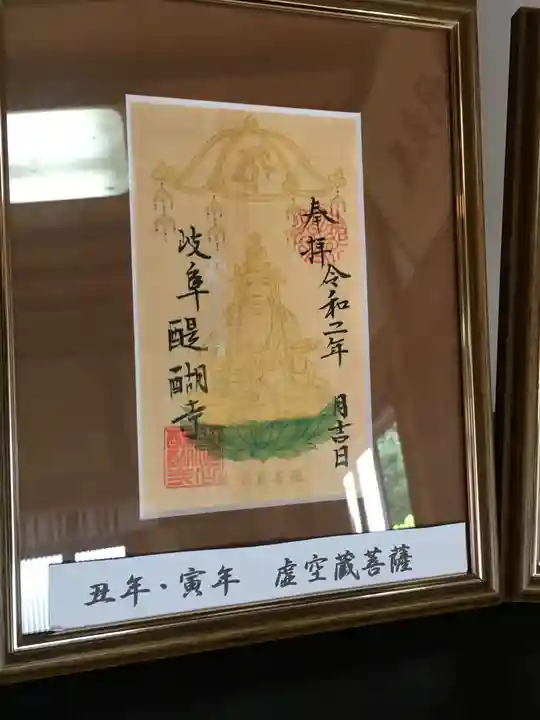 奉拝
令和二年 月吉日
岐阜醍醐寺
丑年・寅年 虚空蔵菩薩